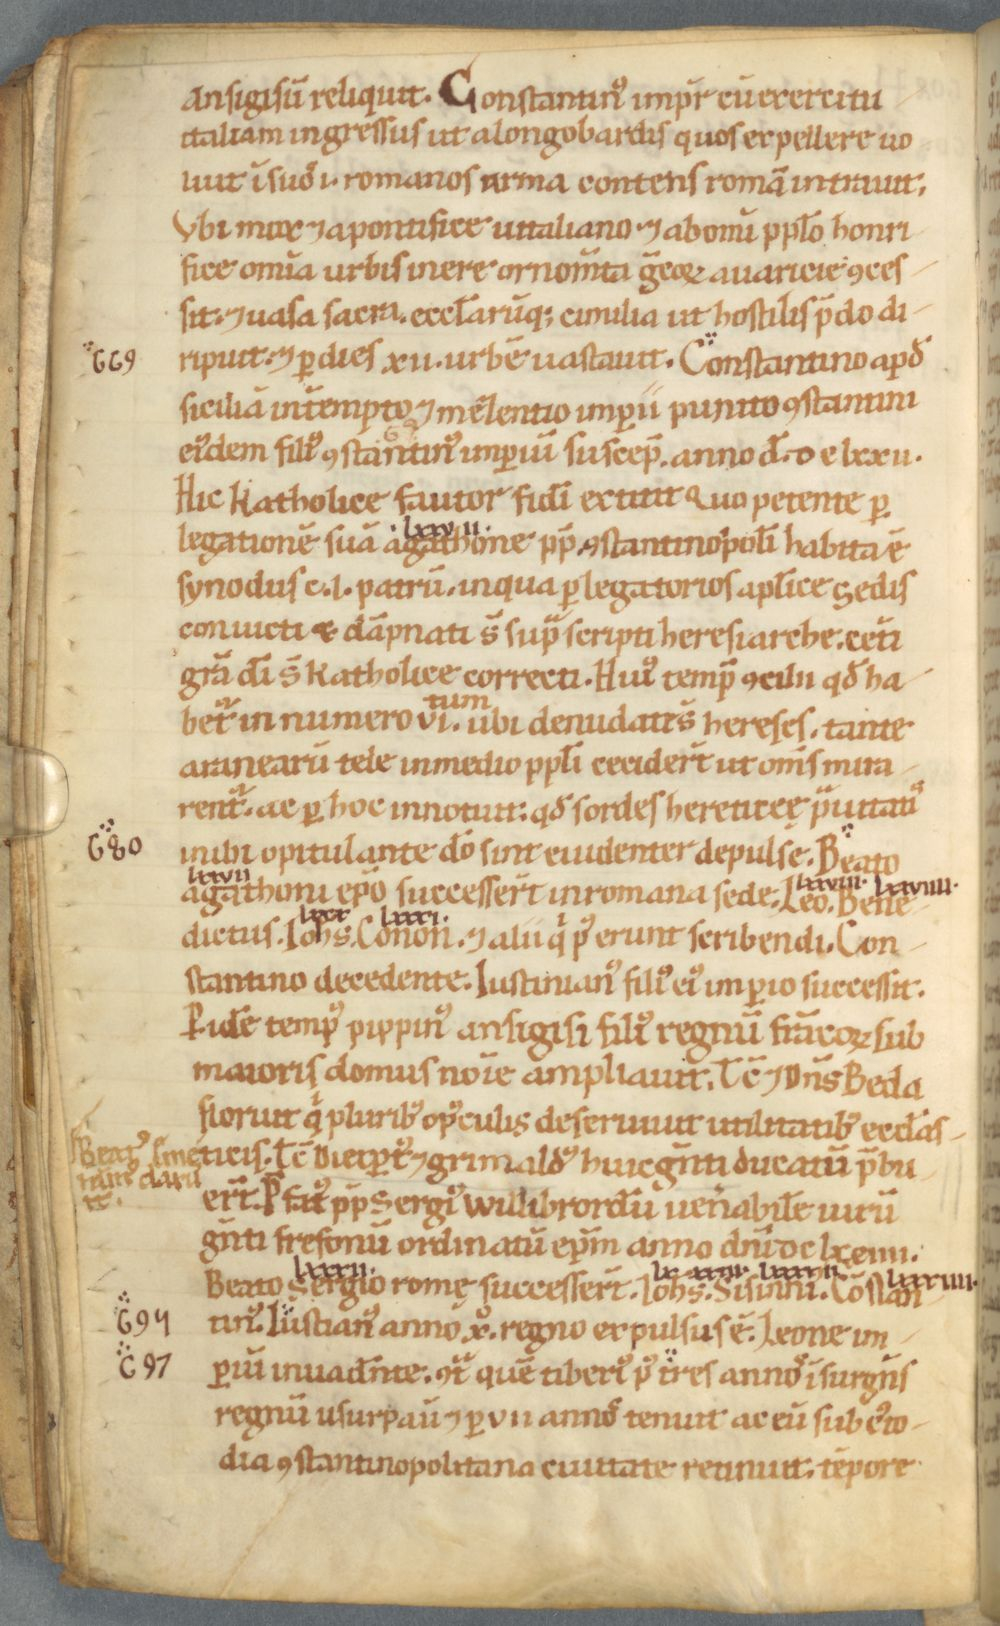 Ansigisū reliquit. Constantin⁹ imp̄r cū exercitu
italiam ingressus ut alongobardis quos expellere uo
luit ī suo᷑ ꝛ. romanos arma contens romā intrauit.
Vbi mox ⁊ apontifice uitaliano. ⁊ ab omī pplo honri
fice omīa urbis inere ornom̄ta greꝝ auaricie ꝯces
sit. ⁊ uasa sacra. eccl̄arūq; cimilia ut hostilis p̄do di
669
ripuit. ⁊ ꝑ dies xii. urbē uastauit. Constantino apđ
siciliā int̄emp̄to ⁊ meꝫentio imꝑii punito ꝯstantini
ei⁹dem fili⁹ ꝯstantin⁹ imꝑiū suscep̄. anno d̄. dclxxii.
Hic katholice fautor fidī extitit Quo petente ꝑ
lxxvii.
legationē suā agathone pp̄. ꝯstantinopolī habita ē
synodus c.l. patrū. inqua ꝑ legatorios apl̄ice sedis
conuicti & dāpnati s̄ sup̄ scripti heresiarche. cet̄i
grā dī s̄ katholice correcti. Hui⁹ temp̄ ꝯcilii qđ ha
tum
bet᷑ in numero vi. ubi denudatis hereses. tante
aranearū tele inmedio ppl̄i cecidert̄ ut om̄s mira
rent᷑. ac ꝑ hoc innotuit. qđ sordes hereticę p̄uitati⁹
680
inibi opitulante dō sint euidenter depulse. Beato
lxxvii lxxviii. lxxviiii.
agathoni ep̄o successert̄ inromana sede. Leo. Bene
lxxx lxxxi.
dictus. Iohs̄. Conon. ⁊ alii q̄ p⁹ erunt scribendi. Con
stantino decedente. Iustinian⁹ fili⁹ ei⁹ imꝑio successit.
P idē temp⁹ pippin⁹ ansigisi fili⁹ regnū frācoꝝ sub
maioris domus noīe ampliauit. Tc̄ ⁊ Dn̄s Beda
floruit q̄ plurib⁹ op⁹culis deseruiuit utilitatib⁹ eccl̄as
ticis. Tc̄ Dietꝑt⁹ ⁊ grimald⁹ huic gn̄ti ducatū p̄bu
ert̄. P fat⁹ pp̄ Sergi⁹ Willibrordū uenabile uirū
gn̄ti fresonū ordinatū ep̄m anno dn̄i dclxciiii.
lxxxii. lxxxiiii.
Beato Sergio romę successert̄. Iohs̄. Sisinni⁹. Cōstan
694
tin⁹. Iustian⁹ anno x⁹. regno expulsus ē. Leone im
697
ꝑiū inuadn̄te. ꝯt᷑ quē tiberi⁹ p⁹ tres anno⁹ īsurgn̄s
regnū usurpaū ⁊ ꝑ vii anno⁹ tenuit ac eū sub c⁹to
dia ꝯstantinopolitana ciuitate retinuit. tēpore